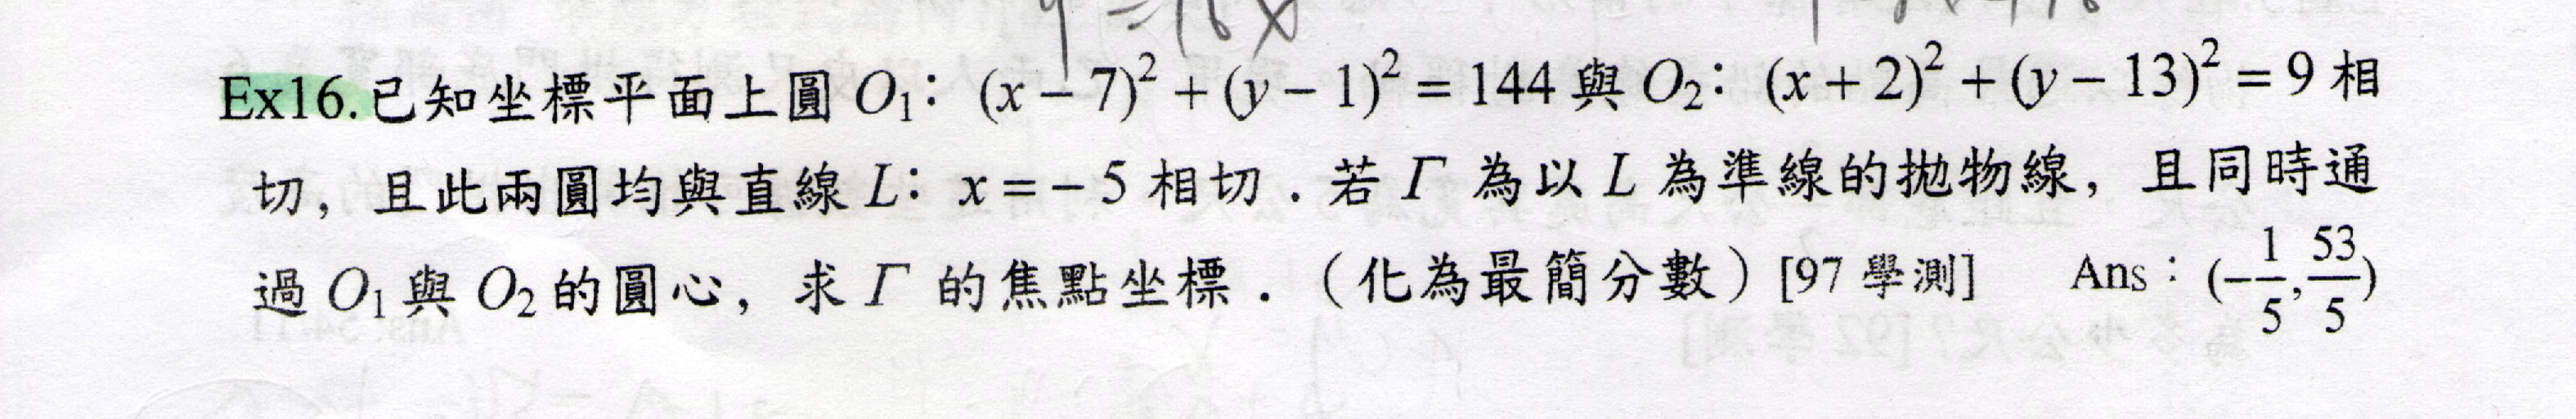 Ex16.已知坐標平面上圓 O₁：(x − 7)² + (y − 1)² = 144 與 O₂：(x + 2)² + (y − 13)² = 9 相
切，且此兩圓均與直線 L：x = − 5 相切．若 Γ 為以 L 為準線的拋物線，且同時通
過 O₁ 與 O₂ 的圓心，求 Γ 的焦點坐標．（化為最簡分數）[97 學測] Ans：(−1/5, 53/5)